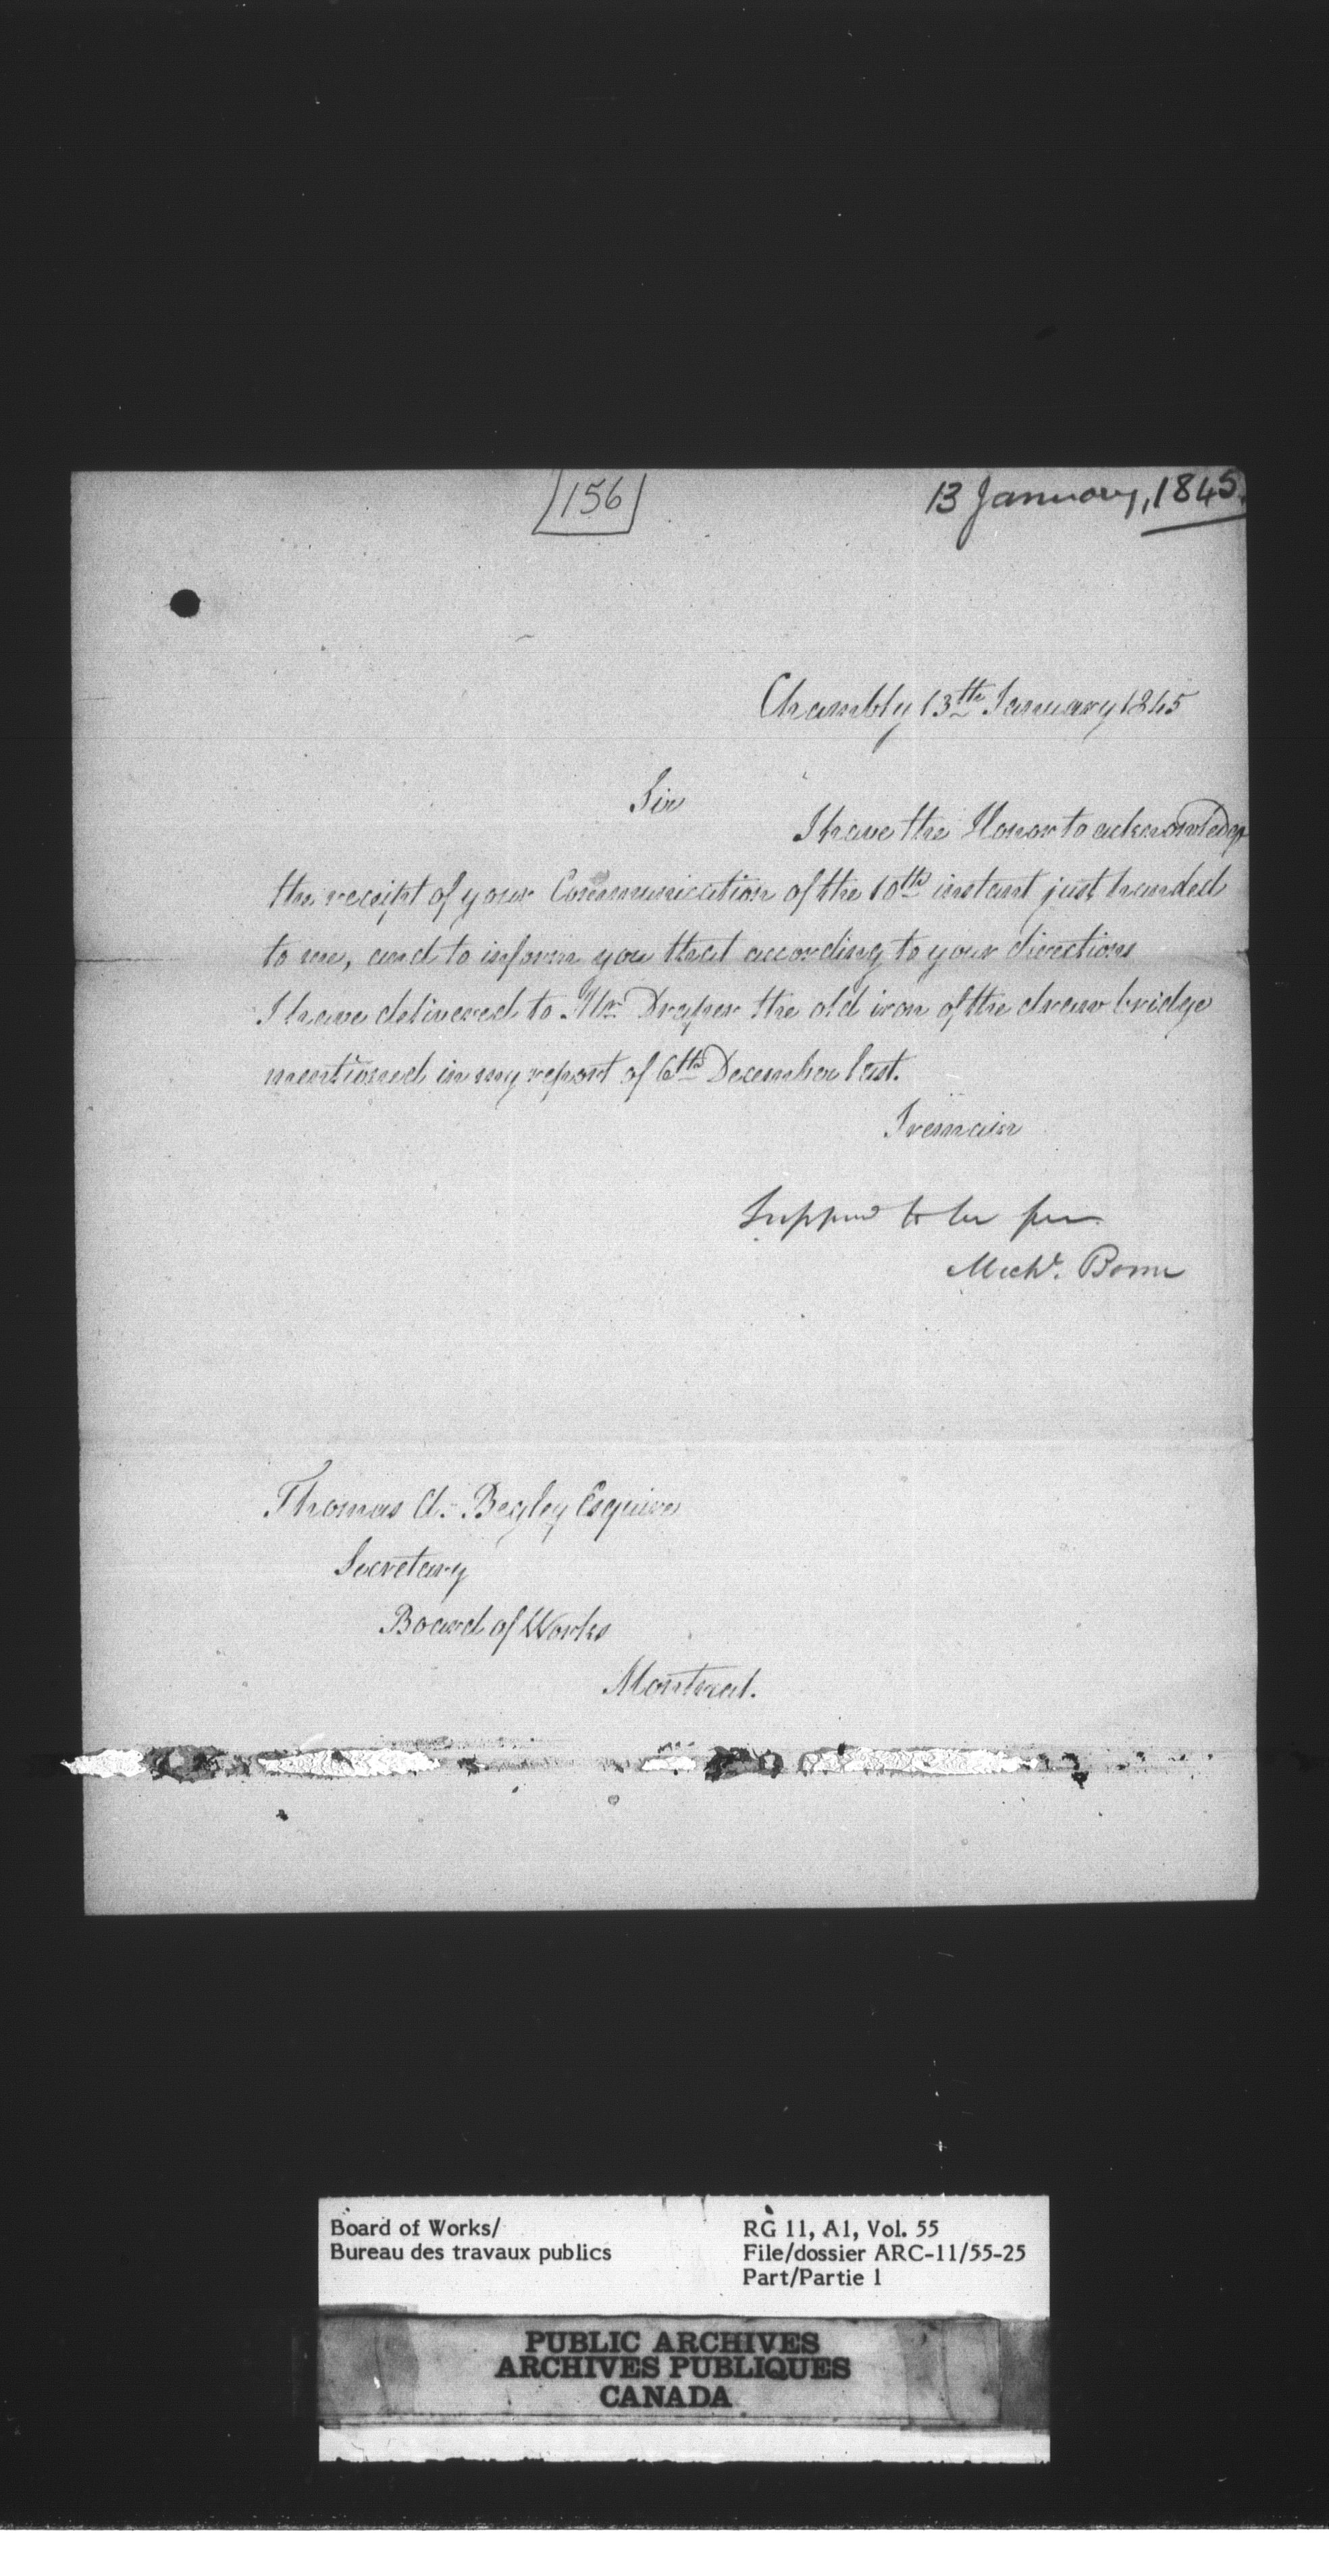 156
13 January, 1845.
Chambly 13th January 1845
Sir
I have the Honor to acknowledge
the receipt of your Communication of the 10th instant just handed
to me, and to inform you that according to your directions
I have delivered to Mr. Draper the old iron of the draw bridge
mentioned in my report of 6th December last.
I remain
Supposed to be from
Michl.
Thomas A. Begley Esquire
Secretary
Board of Works
Montreal.
Board of Works/
Bureau des travaux publics
RG 11, A1, Vol. 55
File/dossier ARC-11/55-25
Part/Partie 1
PUBLIC ARCHIVES
ARCHIVES PUBLIQUES
CANADA